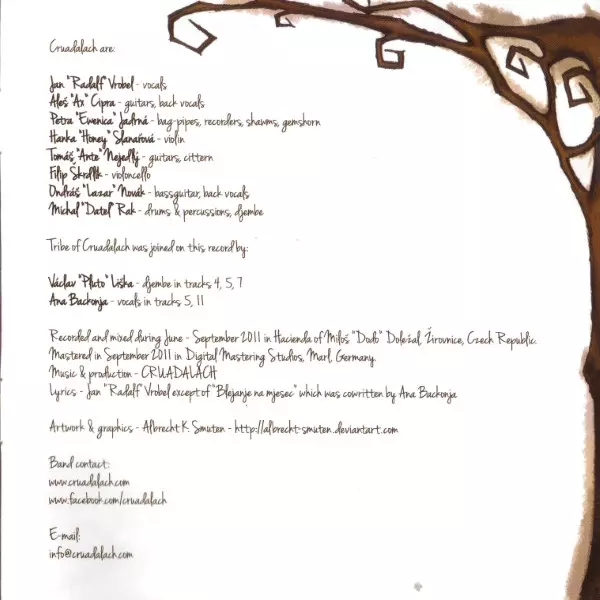 Cruadalach are:
Jan "Radalf" Vrobel - vocals
Aleš "Ax" Cipra - guitars, back vocals
Petra "Ewenica" Jadrná - bag-pipes, recorders, shawms, gemshorn
Hanka "Honey" Slanařová - violin
Tomáš "Ante" Nejedlý - guitars, cittern
Filip Škrdlík - violoncello
Ondráš "Lazar" Novák - bassguitar, back vocals
Michal "Datel" Rak - drums & percussions, djembe
Tribe of Cruadalach was joined on this record by:
Václav "Pluto" Liška - djembe in tracks 4, 5, 7
Ana Backonja - vocals in tracks 5, 11
Recorded and mixed during June - September 2011 in Hacienda of Miloš "Dodo" Doležal, Žirovnice, Czech Republic.
Mastered in September 2011 in Digital Mastering Studios, Marl, Germany.
Music & production - CRUADALACH
Lyrics - Jan "Radalf" Vrobel except of "Blejanje na mjesec" which was cowritten by Ana Backonja
Artwork & graphics - Albrecht K. Smuten - http://albrecht-smuten.deviantart.com
Band contact:
www.cruadalach.com
www.facebook.com/cruadalach
E-mail:
info@cruadalach.com